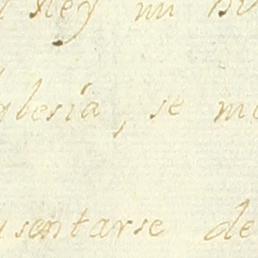 Rey mi
Iglesia, se
usentarse de